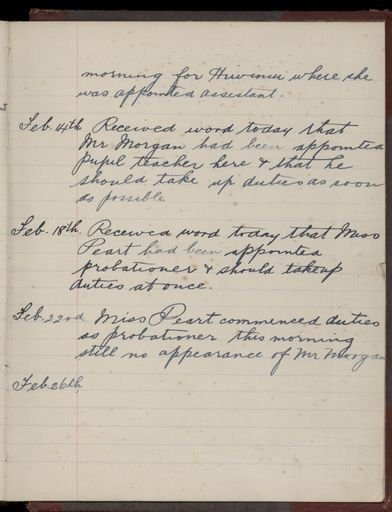 morning for Hiwinui where she
was appointed assistant.
Feb. 14th Received word today that
Mr Morgan had been appointed
pupil teacher here & that he
should take up duties as soon
as possible
Feb. 18th. Received word today that Miss
Peart had been appointed
probationer & should take up
duties at once.
Feb. 22nd. Miss Peart commenced duties
as probationer this morning
still no appearance of Mr Morgan
Feb. 26th